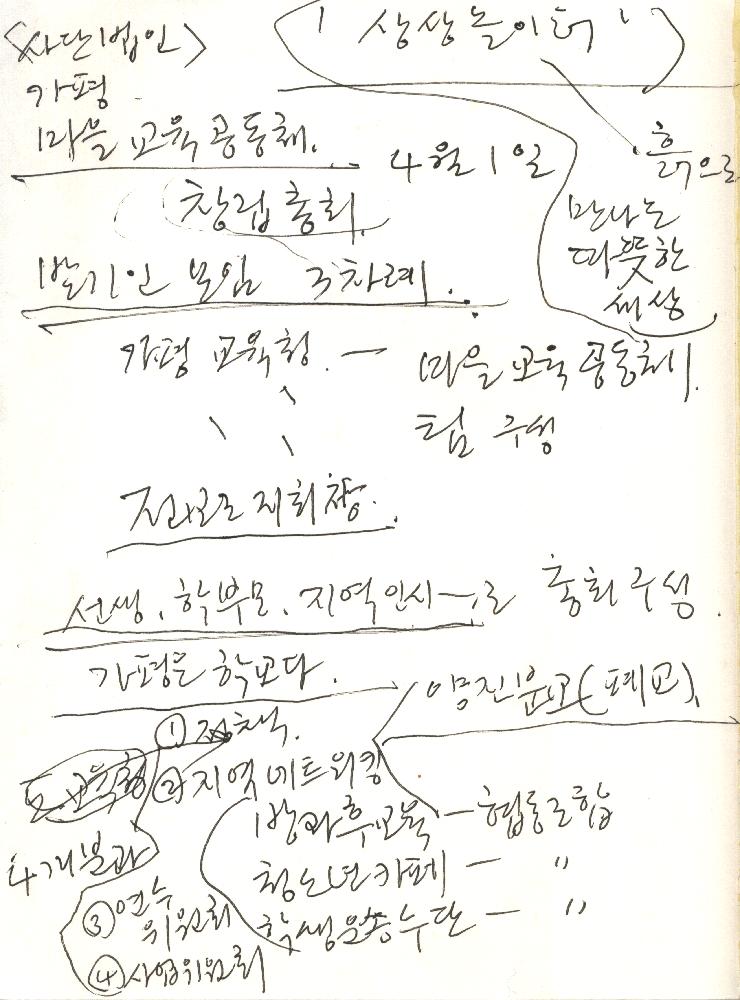 <사단법인>
가평
마을 교육 공동체.
' 상상놀이터 '
4월 1일
흙으로
만나는
따뜻한
세상
창립총회.
발기인 모임 3차례.
가평 교육청. — 마을 교육 공동체.
팀 구성
선생, 학부모, 지역인사—로 총회 구성.
가평은 학교다.
(폐교).
① 정책.
도 교육청 ② 지역 네트워킹
방과후교육 — 협동조합
4개분과
청소년카페 — 〃
③ 연수
위원회
학생 — 〃
④ 사업위원회